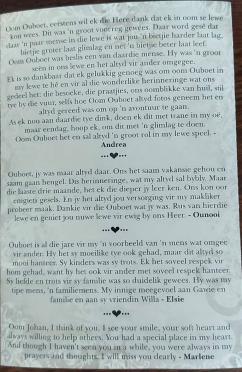 Oom Ouboet, eerstens wil ek die Here dank dat ek in oom se lewe
kon wees. Dit was 'n groot voorreg gewees. Daar word gesê dat
daar 'n paar mense in die lewe is wat jou 'n bietjie harder laat lag,
bietjie groter laat glimlag en net 'n bietjie beter laat leef.
Oom Ouboet was beslis een van daardie mense. Hy was 'n groot
seën in ons lewe en het altyd vir ander omgegee.
Ek is so dankbaar dat ek gelukkig genoeg was om oom Ouboet in
my lewe te hê en vir al die wonderlike herinneringe wat ons
gedeel het: die besoeke, die praatjies, ons oomblikke van huil, stil
tye by die vuur, selfs hoe Oom Ouboet altyd fotos geneem het en
altyd gereed was om op 'n avontuur te gaan.
As ek nou aan daardie tye dink, doen ek dit met trane in my oë,
maar eendag, hoop ek, om dit met 'n glimlag te doen.
Oom Ouboet het en sal altyd 'n groot rol in my lewe speel. -
Andrea
Ouboet, jy was maar altyd daar. Ons het saam vakansie gehou en
saam gaan hengel. Dis herinneringe, wat my altyd sal bybly. Maar
die laaste drie maande, het ek die dieper jy leer ken. Ons kon oor
enigiets gesels. En jy het altyd jou versorging vir my makliker
probeer maak. Dankie vir die Ouboet wat jy was. Rus van hierdie
lewe en geniet jou nuwe lewe vir ewig by ons Heer. - Ounooi
Ouboet is al die jare vir my 'n voorbeeld van 'n mens wat omgee
vir ander. Hy het sy moeilike tye ook gehad, maar dit altyd so
mooi hanteer. Sy kinders was sy trots. Ek het soveel respek vir
hom gehad, want hy het ook vir ander met soveel respek hanteer.
Sy liefde en trots vir sy familie was so duidelik gewees. Hy was my
tipe mens, 'n familiemens. My innige meegevoel aan Gawie en
familie en aan sy vriendin Willa - Elsie
Oom Johan, I think of you. I see your smile, your soft heart and
always willing to help others. You had a special place in my heart.
And though I haven't seen you in a while, you were always in my
prayers and thoughts. I will miss you dearly - Marlene